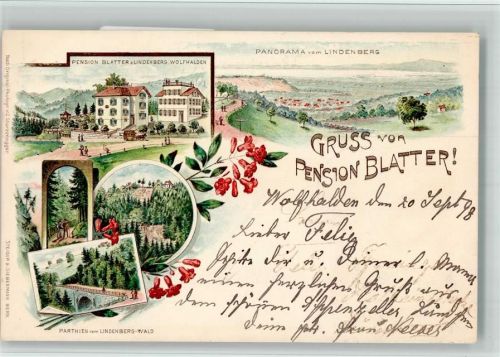 PENSION BLATTER z. LINDENBERG WOLFHALDEN
PANORAMA vom LINDENBERG
GRUSS von
PENSION BLATTER!
Wolfhalden den 20 Sept 98
Lieber Felix
Schicke dir u. deiner l. Mama
einen herzlichen Gruß aus
dem schönen Appenzeller
dein
PARTHIEN vom LINDENBERG-WALD